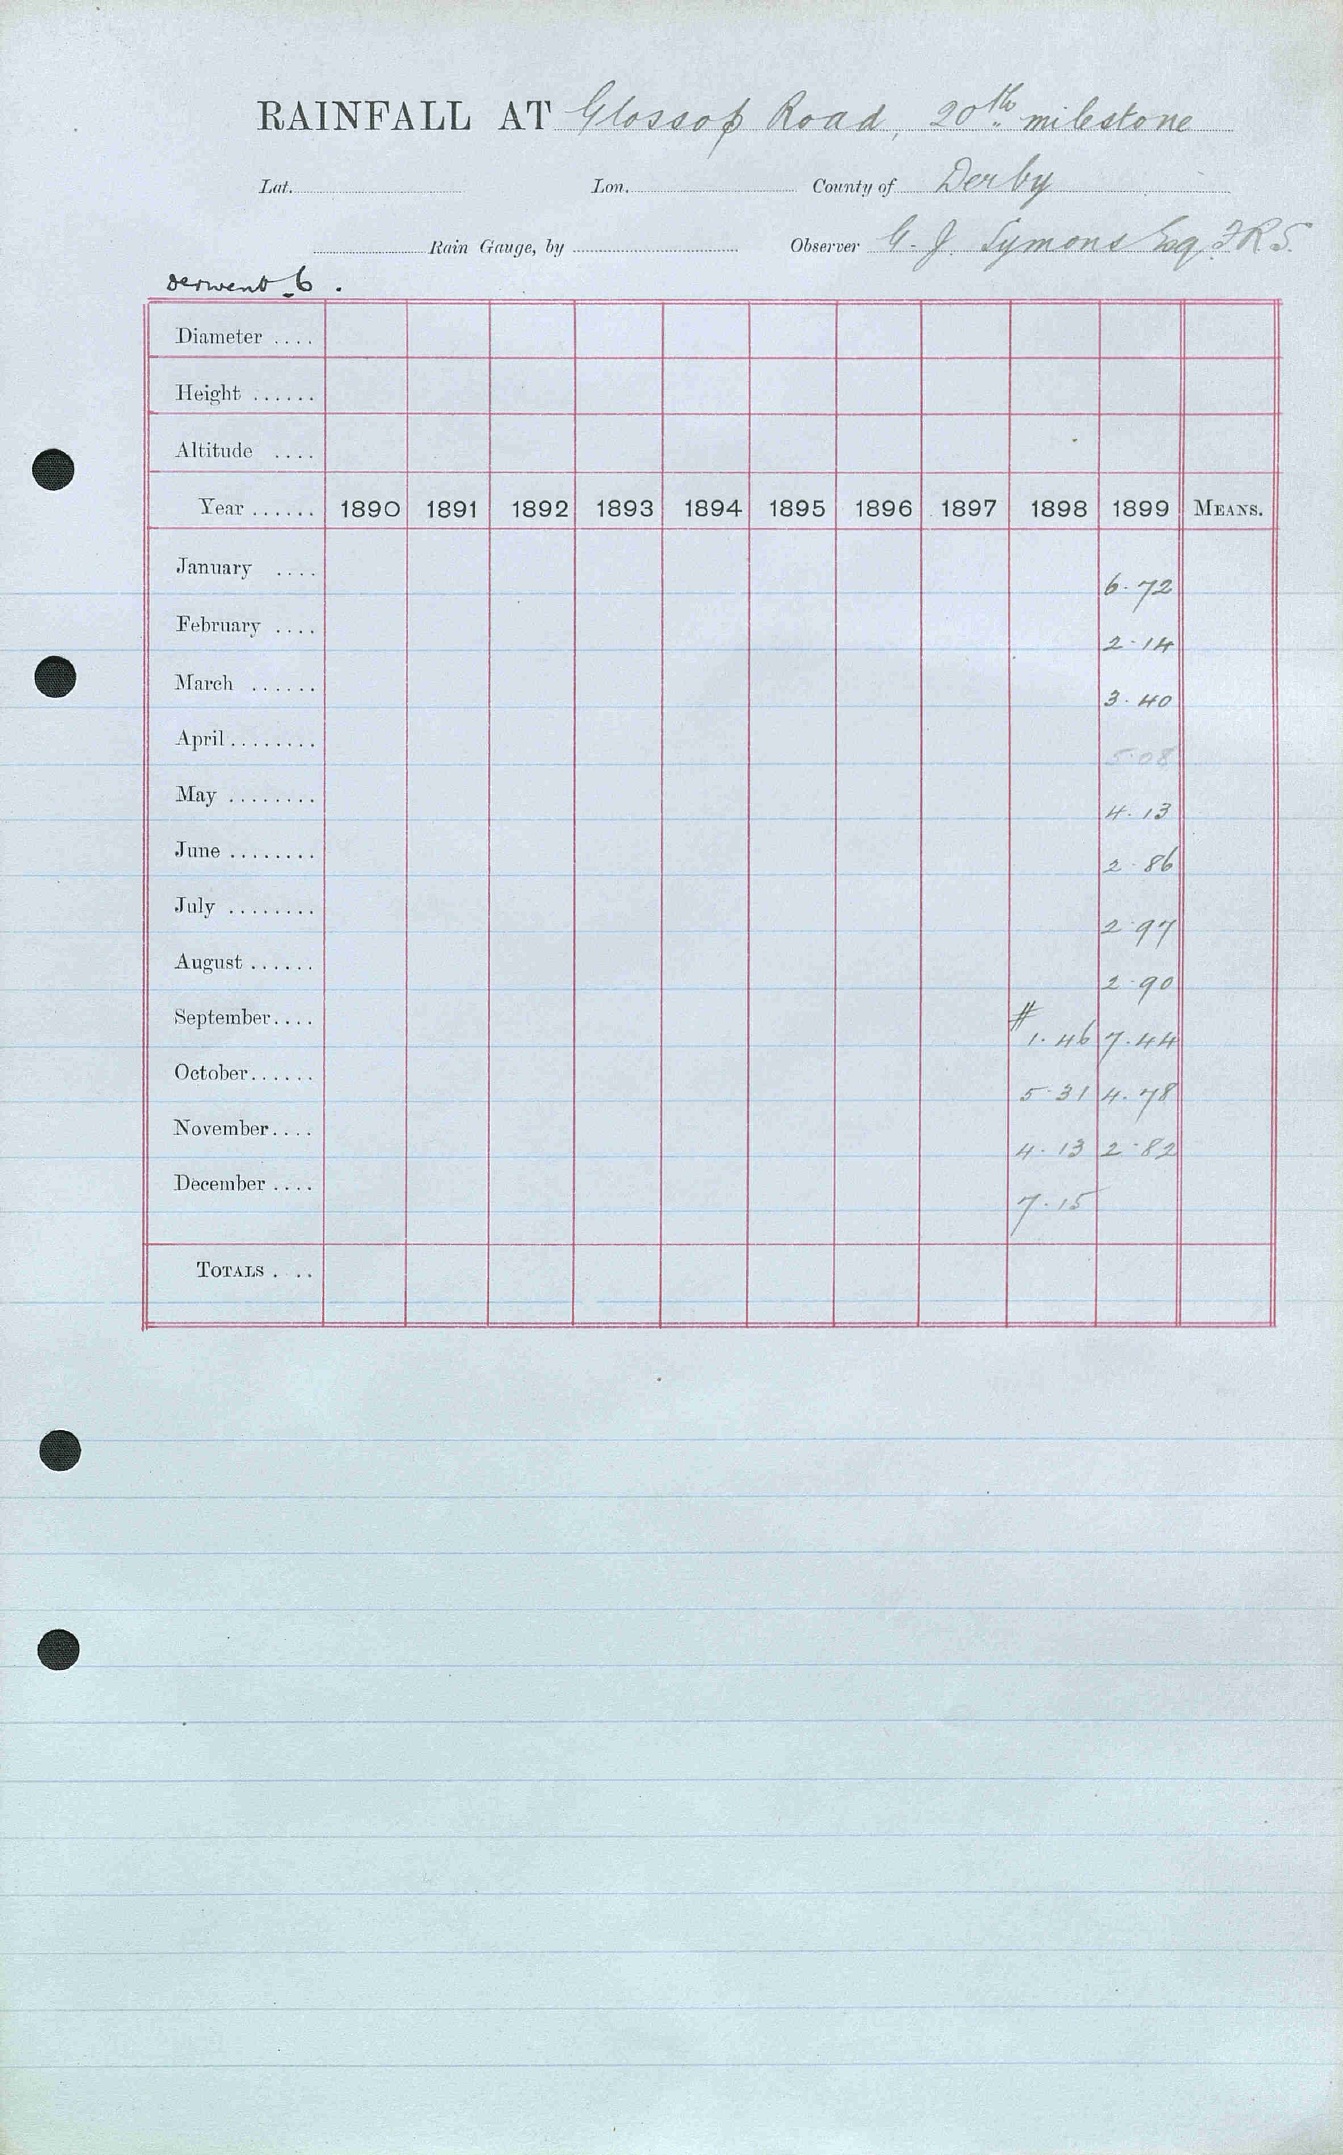 RAINFALL AT Glossop Road, 20th milestone
Lat. Lon. County of Derby
Rain Gauge, by Observer G. J. Symons Esq F.R.S.
Derwent 6.
Diameter ....
Height ......
Altitude ....
Year ...... 1890 1891 1892 1893 1894 1895 1896 1897 1898 1899 MEANS.
January .... 6.72
February .... 2.14
March ...... 3.40
April ........ 5.08
May ........ 4.13
June ........ 2.86
July ........ 2.97
August ...... 2.90
September.... # 1.46 7.44
October...... 5.31 4.78
November.... 4.13 2.82
December .... 7.15
TOTALS . ..